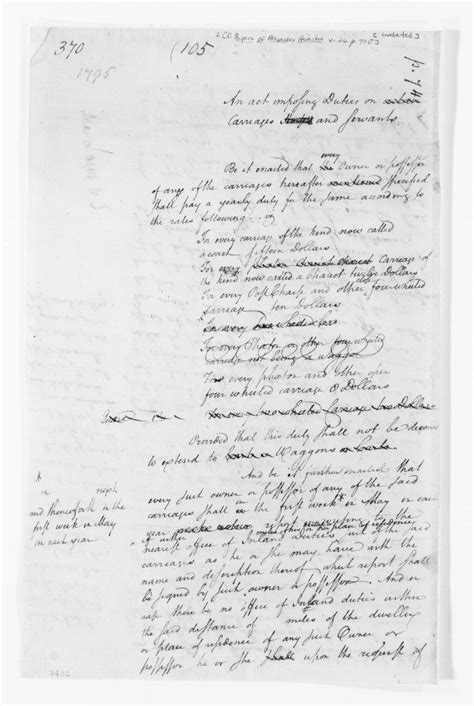 370
(105
1795
p. 7
An act imposing Duties on
Carriages and Servants
Be it enacted that every Owner or possessor
of any of the carriages hereafter specified
shall pay a yearly duty for the same according to
the rates following
In every carriage of the kind now called
a coach fifteen Dollars
For every Carriage of
the kind now called a Chariot twelve Dollars
In every Post Chaise and other close four wheeled
carriage ten Dollars
For every Phaeton or other four wheeled
carriage not being a waggon
In every phaeton and other open
four wheeled carriage 8 Dollars
two wheeled Carriage two Dollars
Provided that this duty shall not be deemed
to extend to Waggons or Carts
And be it further enacted that
every such owner or possessor of any of the said
carriages shall in the first week in May in each
year report to the
nearest office of Inland Duties of the said
carriages as he or she may have with the
name and description thereof which report shall
be signed by such owner or possessor. And in
case there be no office of Inland duties within
the said distance of miles of the dwelling
or place of residence of any such Owner or
possessor he or she shall upon the request of
in
and thenceforth in the
first week in May
in each year